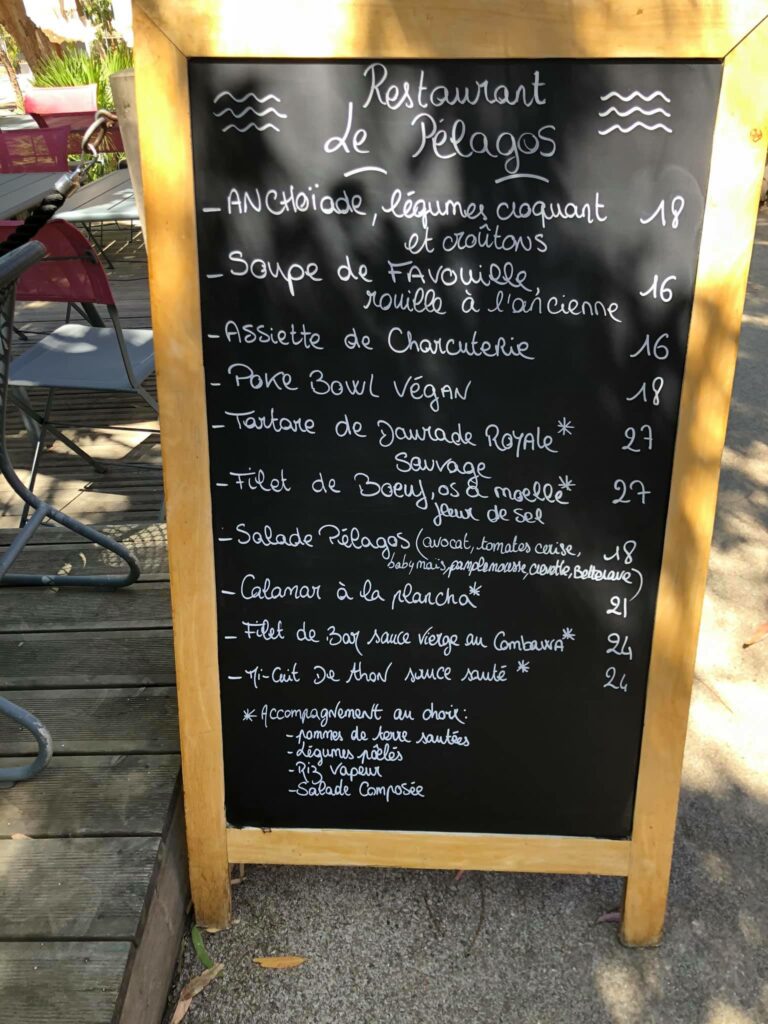 Restaurant
Le Pélagos
- ANCHOïADE, légumes croquant 18
et croûtons
- Soupe de FAVOUILLE, 16
rouille à l'ancienne
- Assiette de Charcuterie 16
- POKE BOWL VÉGAN 18
- Tartare de Daurade ROYALE* 27
Sauvage
- Filet de Boeuf, os à moelle* 27
fleur de sel
- Salade Pélagos (avocat, tomates cerise, 18
baby mais, pamplemousse, Betterave)
- Calamar à la plancha* 21
- Filet de Bar sauce vierge au Combawa* 24
- Mi-Cuit De thon sauce santé * 24
* Accompagnement au choix:
- pommes de terre sautées
- Légumes poêlés
- Riz Vapeur
- Salade Composée